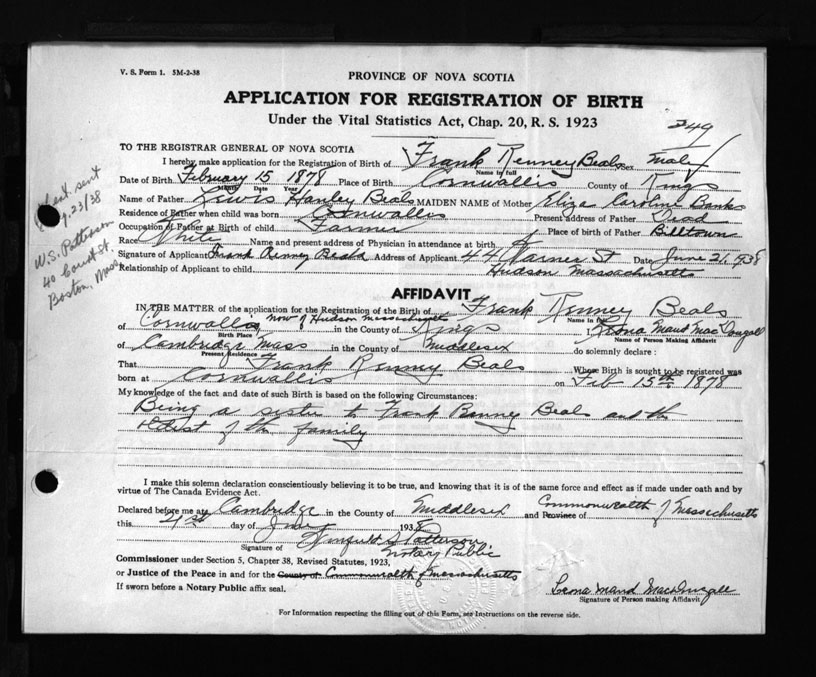 V. S. Form 1. 5M-2-38
PROVINCE OF NOVA SCOTIA
APPLICATION FOR REGISTRATION OF BIRTH
Under the Vital Statistics Act, Chap. 20, R. S. 1923
249
TO THE REGISTRAR GENERAL OF NOVA SCOTIA
I hereby make application for the Registration of Birth of Frank Renney Beals Sex Male
Name in full
Date of Birth February 15 1878 Place of Birth Cornwallis County of Kings
Month Date Year
Name of Father Lewis Hanley Beals MAIDEN NAME of Mother Eliza Caroline Banks
Residence of Father when child was born Cornwallis Present address of Father Dead
Occupation of Father at Birth of child Farmer Place of birth of Father Billtown
Race White Name and present address of Physician in attendance at birth
Signature of Applicant Frank Renney Beals Address of Applicant 44 Warner St Date June 21, 1938
Relationship of Applicant to child Hudson Massachusetts
sent
9-23/38
W.S. Patterson
40 Court St.
Boston, Mass
AFFIDAVIT
IN THE MATTER of the application for the Registration of the Birth of Frank Renney Beals
Name in full
of Cornwallis now of Hudson Massachusetts in the County of Kings Leona Maud MacDougall
Birth Place Name of Person Making Affidavit
of Cambridge Mass in the County of Middlesex do solemnly declare :
Present Residence
That Frank Renney Beals Whose Birth is sought to be registered was
born at Cornwallis on Feb 15th 1878
My knowledge of the fact and date of such Birth is based on the following Circumstances:
Being a sister to Frank Renney Beals and the
oldest of the family
I make this solemn declaration conscientiously believing it to be true, and knowing that it is of the same force and effect as if made under oath and by
virtue of The Canada Evidence Act.
Declared before me at Cambridge in the County of Middlesex and Province of Commonwealth of Massachusetts
this day of 1938
Winfield S Patterson
Signature of Notary Public
Commissioner under Section 5, Chapter 38, Revised Statutes, 1923,
or Justice of the Peace in and for the County of Commonwealth of Massachusetts
If sworn before a Notary Public affix seal.
Leona Maud MacDougall
Signature of Person making Affidavit
For Information respecting the filling out of this Form, see Instructions on the reverse side.